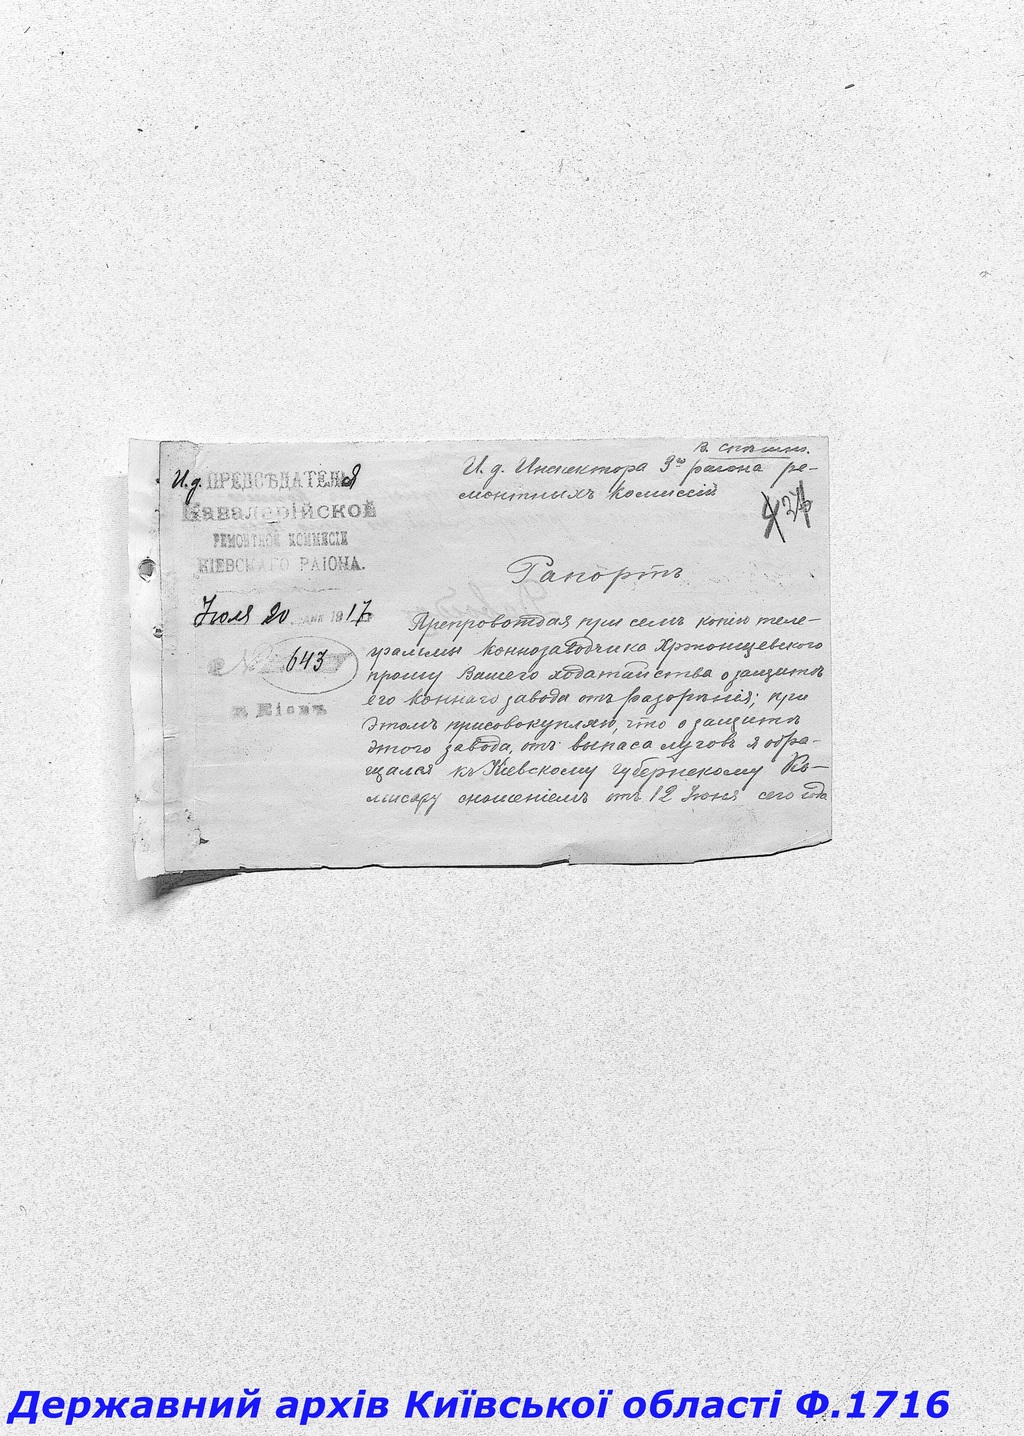 В. спѣшно.
И.д. ПРЕДСѢДАТЕЛЯ
Кавалерійской
РЕМОНТНОЙ КОММИСІИ
КІЕВСКАГО РАІОНА.
Іюля 20 дня 1917
№ 643
г. Кіевъ
И. д. Инспектора 3го района ре-
монтныхъ Комиссій
Рапортъ
Препровождая при семъ копію теле-
граммы Коннозаводчика Хржонщевского
прошу Вашего ходатайства о защитѣ
его Коннаго завода отъ разоренія; при
этомъ присовокупляю, что о защитѣ
этого завода, отъ выпаса луговъ я обра-
щался къ Кіевскому губернскому Ко-
мисару сношеніемъ отъ 12 Іюня сего года
Державний архів Київської області Ф.1716